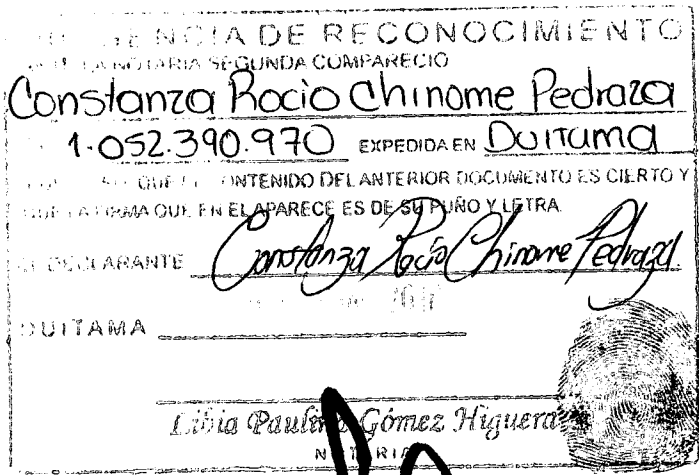 DE RECONOCIMIENTO
LA NOTARIA SEGUNDA COMPARECIO
Constanza Rocio Chinome Pedraza
1.052.390.970 EXPEDIDA EN DUITAMA
QUE EL CONTENIDO DEL ANTERIOR DOCUMENTO ES CIERTO Y
QUE LA FIRMA QUE EN EL APARECE ES DE SU PUÑO Y LETRA
DECLARANTE Constanza Rocío Chinome Pedraza.
DUITAMA
Libia Paulina Gómez Higuera
NOTARIA